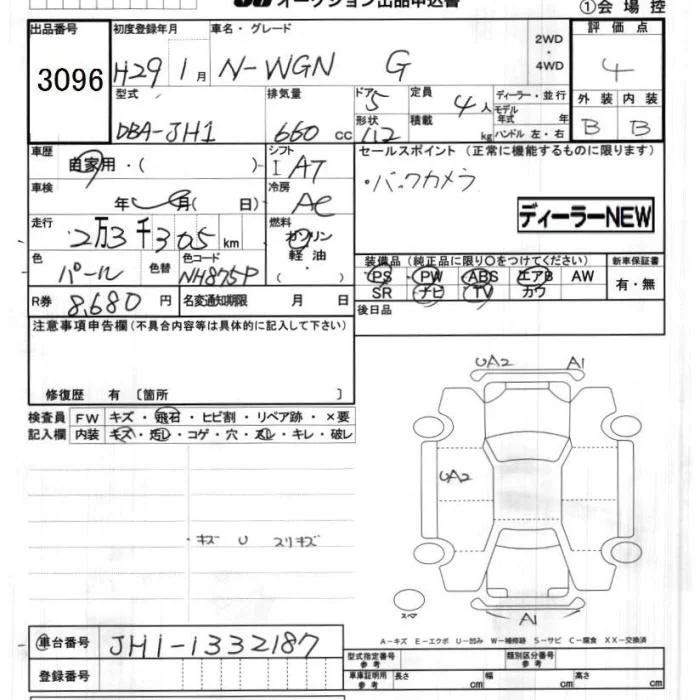 オークション出品申込書
①会場控
出品番号 3096
初度登録年月 H29 1月
車名・グレード N-WGN G
2WD・4WD
評価点 4
外装 B 内装 B
型式 DBA-JH1
排気量 660 cc
ドア 5
形状 112
定員 4人
積載 kg
ディーラー・並行
モデル年式 年
ハンドル 左・右
車歴 自家用・( )
シフト I AT
セールスポイント (正常に機能するものに限ります)
・バックカメラ
ディーラーNEW
車検 年 月( 日)
冷房 AC
走行 2万3千305km
燃料 ガソリン 軽油 ( )
色 パール 色替
色コード NH875P
装備品(純正品に限り〇をつけてください)
PS PW ABS エアB AW
SR ナビ TV カワ
新車保証書 有・無
R券 8,680円
名変通知期限 月 日
後日品
注意事項申告欄(不具合内容等は具体的に記入して下さい)
修復歴 有 〔箇所 〕
検査員記入欄
FW キズ・飛石・ヒビ割・リペア跡・×要
内装 キズ・汚レ・コゲ・穴・スレ・キレ・破レ
・キズ U スリキズ
UA2 A1
UA2
スマ
A1
A-キズ E-エクボ U-凹み W-補修跡 S-サビ C-腐食 XX-交換済
車台番号 JH1-1332187
登録番号
型式指定番号 参考
類別区分番号 参考
車庫証明用 参考 長さ cm 幅 cm 高さ cm